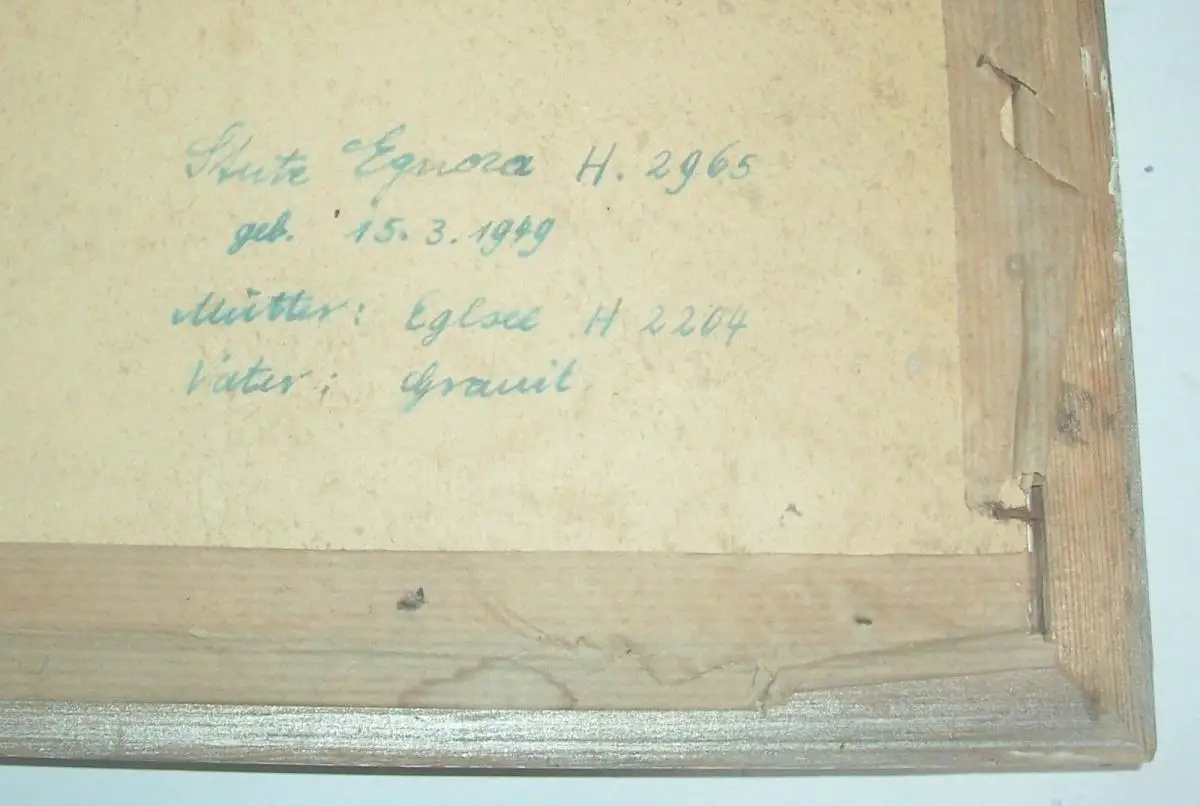 Stute Egnora H. 2965
geb. 15. 3. 1949
Mutter: Eglsee H 2204
Vater: Granit